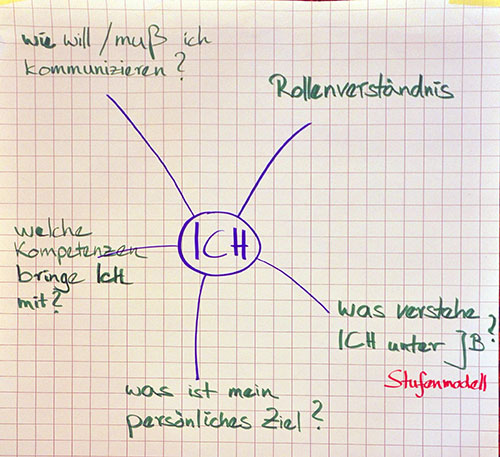 wie will / muß ich
kommunizieren?
Rollenverständnis
ICH
welche
Kompetenzen
bringe ICH
mit?
was verstehe
ICH unter JB?
Stufenmodell
was ist mein
persönliches Ziel?